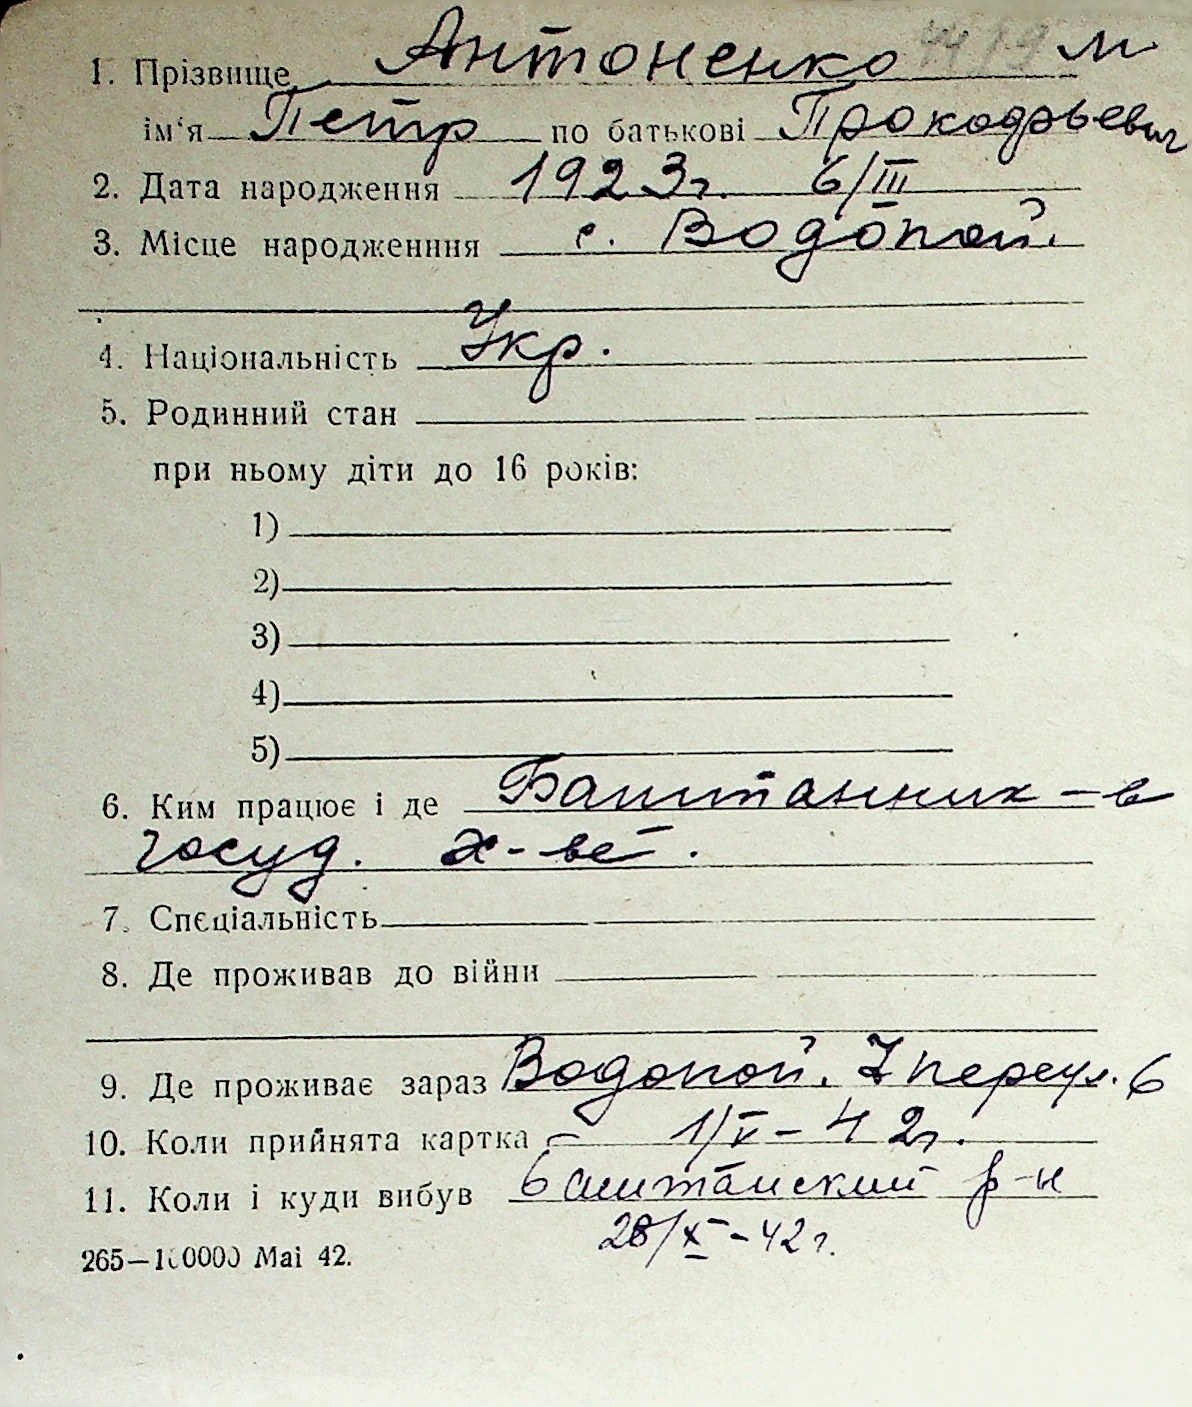 1. Прізвище Антоненко М
ім'я Петр по батькові Прокофьевич
2. Дата народження 1923г. 6/III
3. Місце народженння с. Водопой.
4. Національність Укр.
5. Родинний стан
при ньому діти до 16 років:
1)
2)
3)
4)
5)
6. Ким працює і де Баштанник - в
госуд. х-ве.
7. Спеціальність
8. Де проживав до війни
9. Де проживає зараз Водопой. 7 переул. 6
10. Коли прийнята картка 1/V - 42г.
11. Коли і куди вибув Баштанский р-н
28/X - 42г.
265—100000 Mai 42.